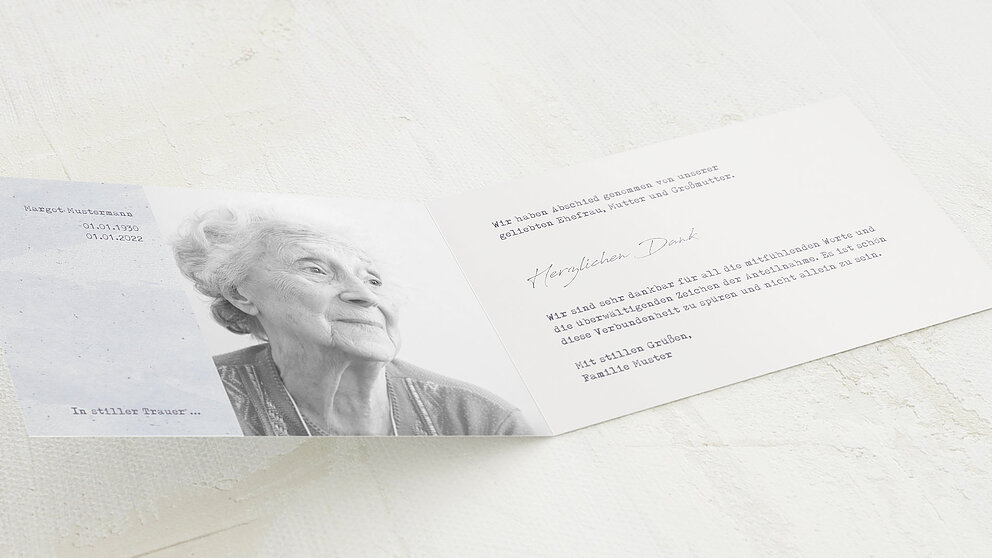 Margot Mustermann
01.01.1930
01.01.2022
In stiller Trauer ...
Wir haben Abschied genommen von unserer
geliebten Ehefrau, Mutter und Großmutter.
Herzlichen Dank
Wir sind sehr dankbar für all die mitfühlenden Worte und
die überwältigenden Zeichen der Anteilnahme. Es ist schön
diese Verbundenheit zu spüren und nicht allein zu sein.
Mit stillen Grüßen,
Familie Muster